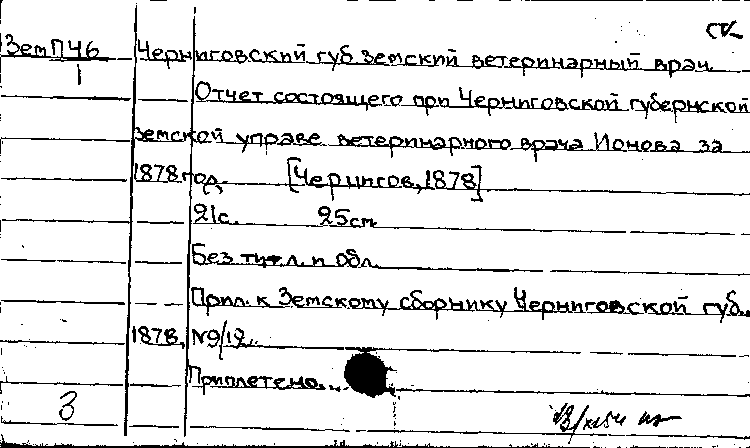 ЗемП46 Черниговский губ. земский ветеринарный врач.
1
Отчет состоящего при Черниговской губернской
земской управе ветеринарного врача Ионова за
1878 год. [Чернигов, 1878]
21с. 25см
Без тит. л. и обл.
Прил. к Земскому сборнику Черниговской губ.,
1878, N9/12.
Приплетено.
3